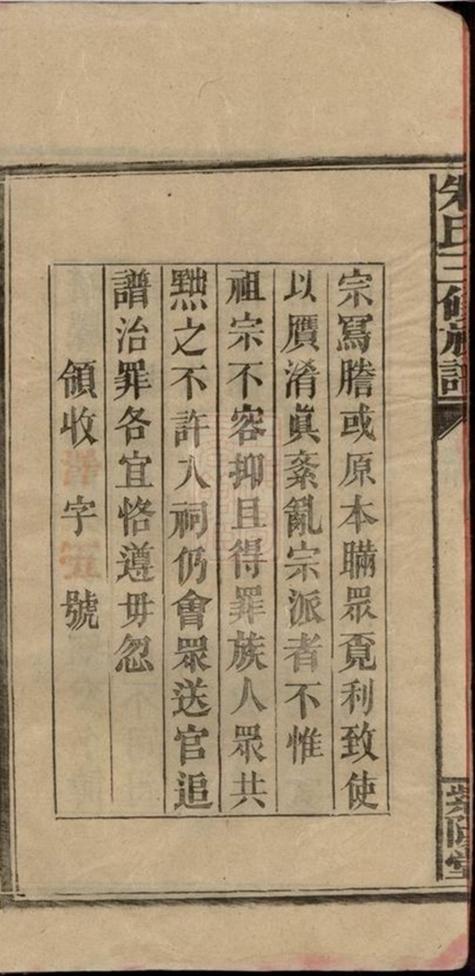 朱氏三修族譜
宗寫謄或原本瞞眾覔利致使
以贋淆眞紊亂宗派者不惟
祖宗不容抑且得罪族人眾共
㸃之不許入祠仍會眾送官追
譜治罪各宜恪遵毋忽
領收 字 號
紫陽堂